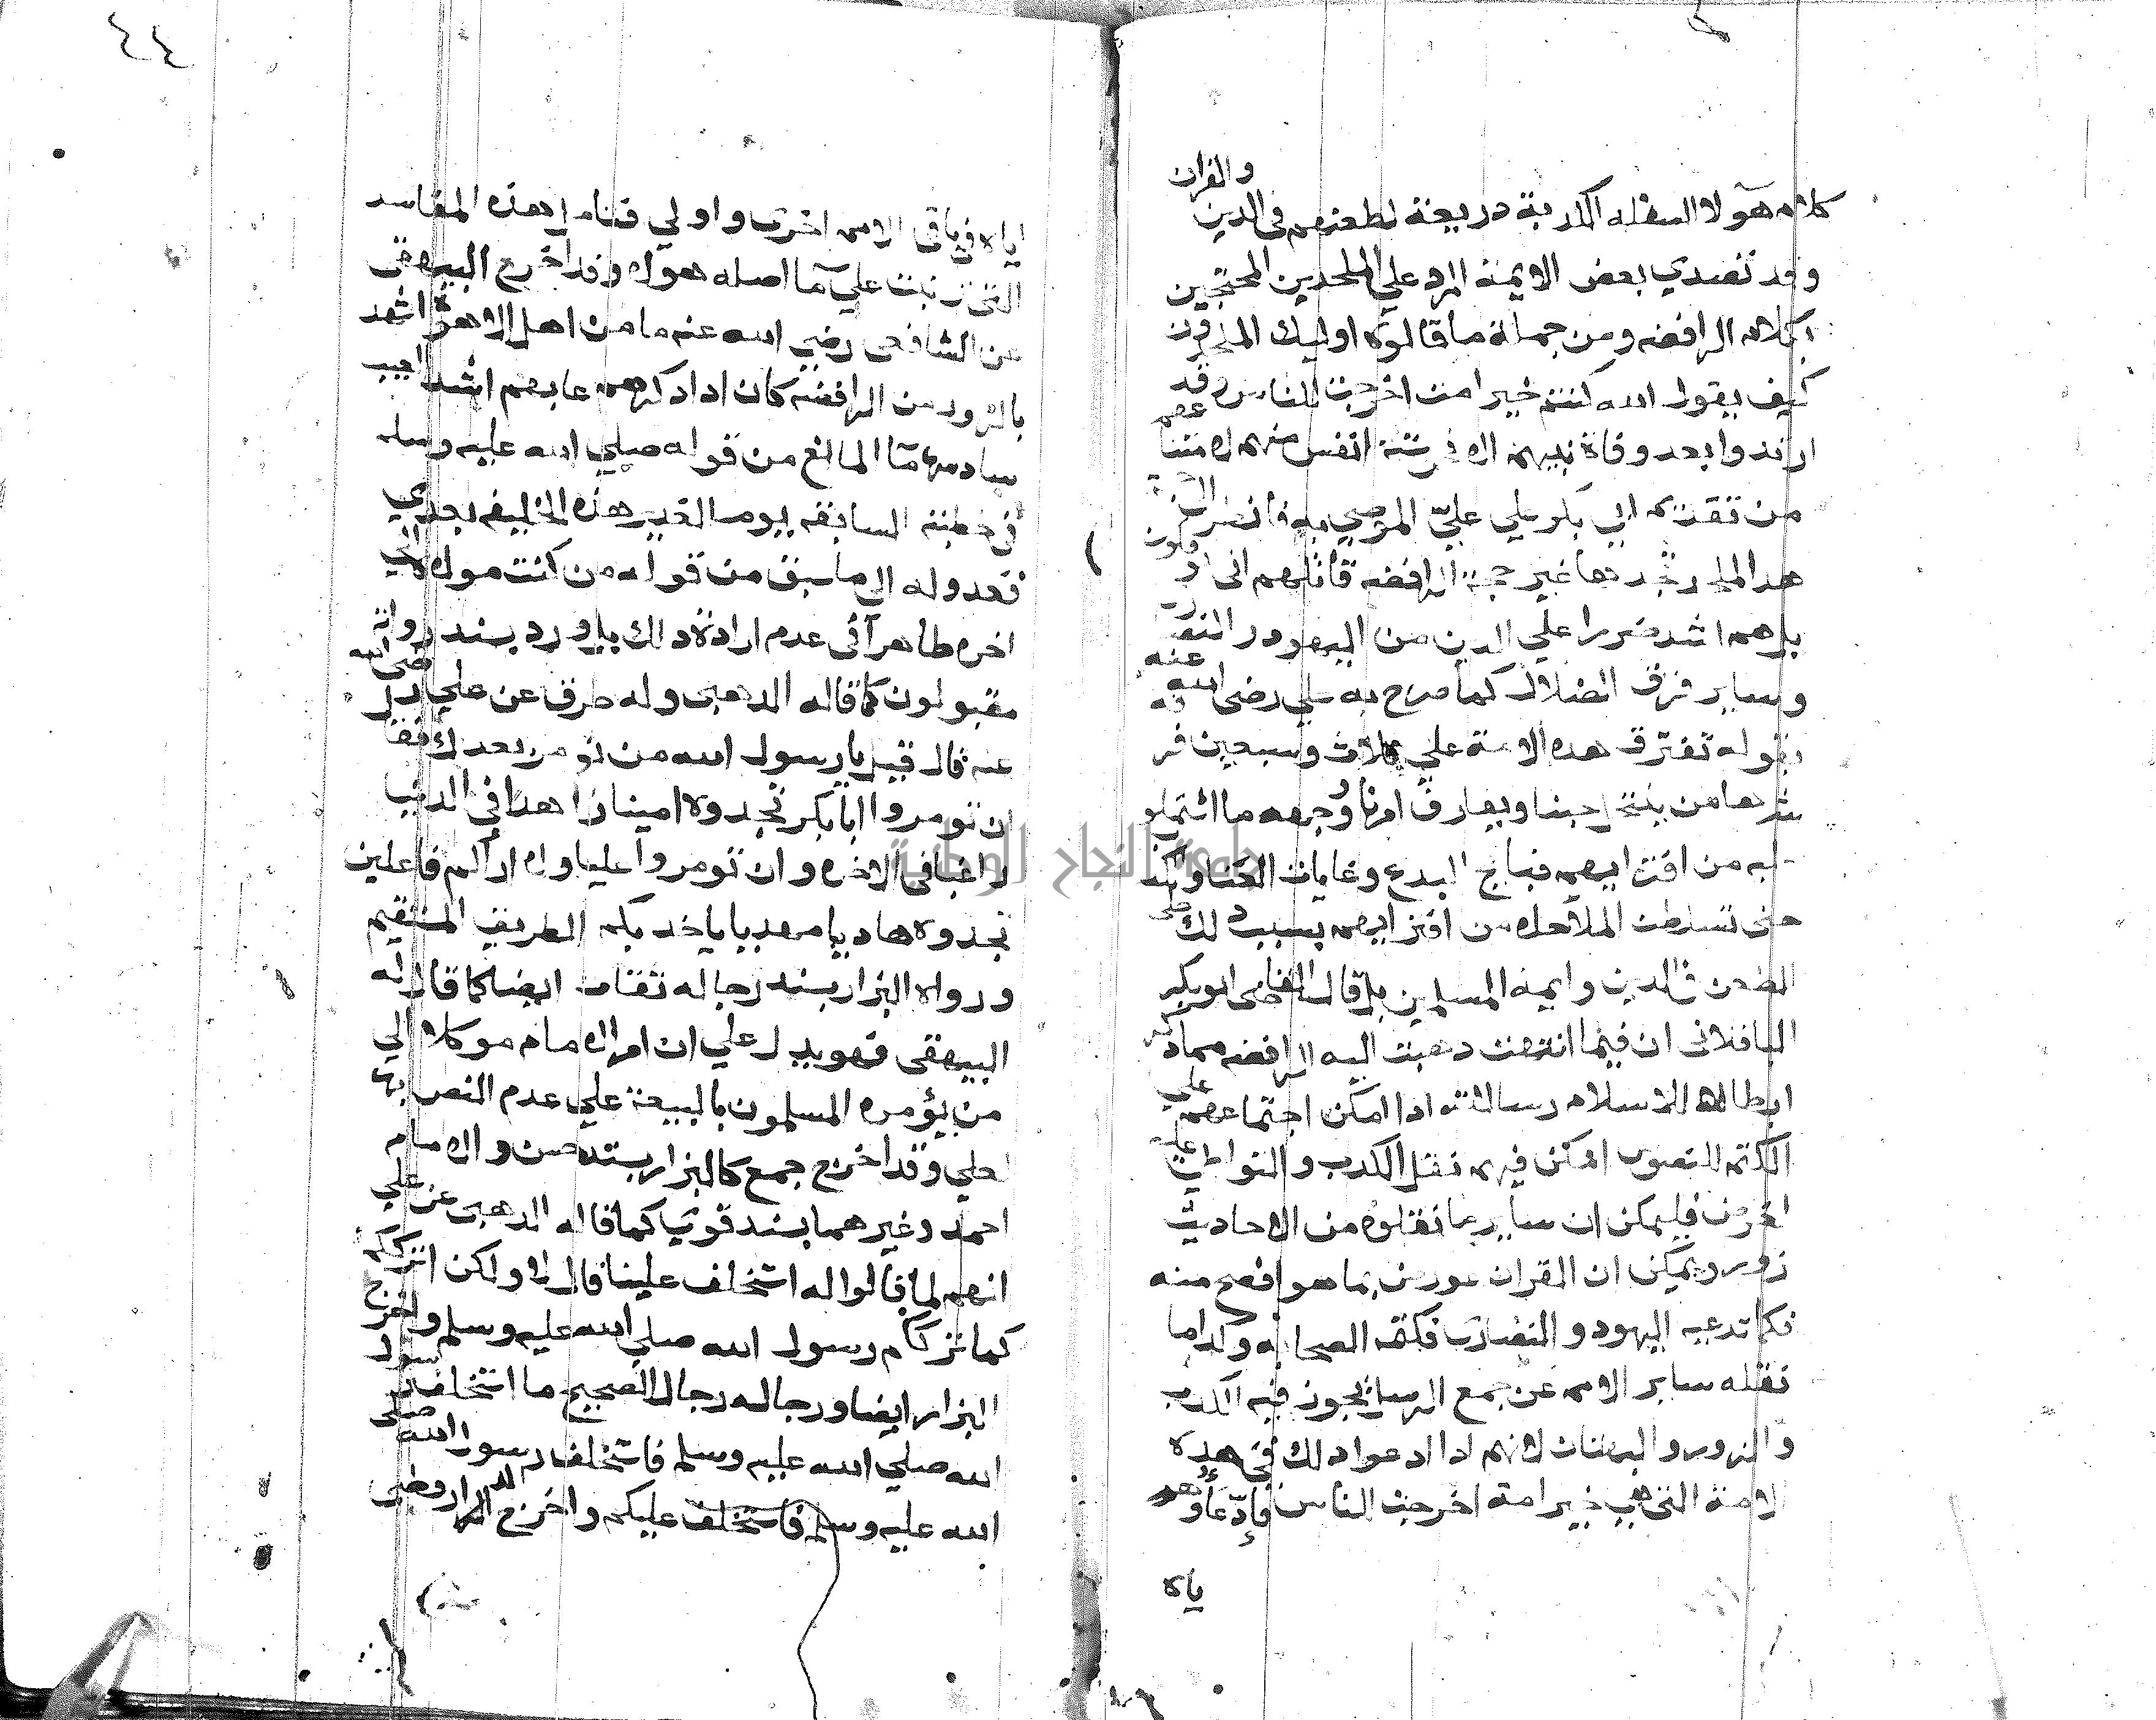 كلام هولا السفله الكدبة دريعة لطعنهم في الدين والقران
وقد تصدي بعض الايمة للرد علي الملحدين المحتجين
بكلام الرافضه ومن جملة ما قالوه اوليك الملحدون
كيف يقول الله كنتم خير امت اخرجت للناس وقد
ارتدوا بعد وفاة نبيهم الا نحو ستة انفس منهم لامتناعهم
من تقديم ابي بكر علي علي الموصي به فانضر الي
هدا الملحد تجدها عين حجة الرافضه قاتلهم الله اني يوفكون
بل هم اشد ضررا علي الدين من اليهود والنصاري
وساير فرق الضلال كما صرح به علي رضي الله عنه
بقوله تفترق هده الامة علي ثلاث وسبعين فرقه
شرها من ينتحل حبنا ويفارق امرنا ووجهه ما اشتملو
عليه من افترايهم قبايح البدع وغايات العناد والكذب
حتي تسلطت الملاحده من افترايهم بسبب دلك علي
الطعن في الدين وايمة المسلمين بل قال القاضي ابو بكر
الباقلاني ان فيما دهبت اليه الرافضه مما دكر
ابطالا للاسلام رسا لانه ادا امكن اجتماعهم علي
الكتم للنصوص امكن فيهم نقل الكدب والتواطي عليه
لغرض فيمكن ان ساير ما نقلوه من الاحاديث
زور ويمكن ان القران عورض بما هو افصح منه
كما تدعيه اليهود والنصاري فكتمه الصحابه وكدا ما
نقله ساير الامم عن جمع الرسل يجوز فيه الكدب
والزور والبهتان لانهم ادا ادعوا دلك في هده
الامة التي هي خير امة اخرجت للناس فادعاوهم
ياه
٤٤
اياه في باقي الامم احري واولي فتامل هده المفاسد
التي ترتبت علي ما اصله هولا وقد اخرج البيهقي
عن الشافعي رضي الله عنه ما من اهل الاهوا اشهد
بالزور من الرافضه كان ادا دكرهم عابهم اشد العيب
ما المانع من قوله صلي الله عليه وسلم
في خطبته السابقه يوم الغدير هدا الخليفه بعدي
فعدوله الي ما سبق من قوله من كنت مولاه الي
اخره طاهر في عدم ارادة دلك بل ورد بسند رواته
مقبولون كما قاله الدهبي وله طرق عن علي رضي الله
عنه قال قيل يا رسول الله من نومر بعدك فقال
ان تومروا ابا بكر تجدوه امينا زاهدا في الدنيا
راغبا في الاخره وان تومروا عليا ولا اراكم فاعلين
تجدوه هاديا مهديا ياخد بكم الطريق المستقيم
ورواه البزار بسند رجاله تقات ايضا كما قال
البيهقي فهو يدل علي ان امر الامام موكلا الي
من يؤمره المسلمون بالبيعة علي عدم النص بها
لعلي وقد اخرج جمع كالبزار بسند حسن والامام
احمد وغيرهما بسند قوي كما قاله الدهبي عن علي
انهم لما قالوا له استخلف علينا قال لا ولكن اترككم
كما ترككم رسول الله صلي الله عليه وسلم واخرج
البزار ايضا ورجاله رجال الصحيح ما استخلف رسول
الله صلي الله عليه وسلم فاستخلف رسول الله صلي
الله عليه وسلم فاستخلف عليكم واخرج الدار وطني
جامعة النجاح الوطنية